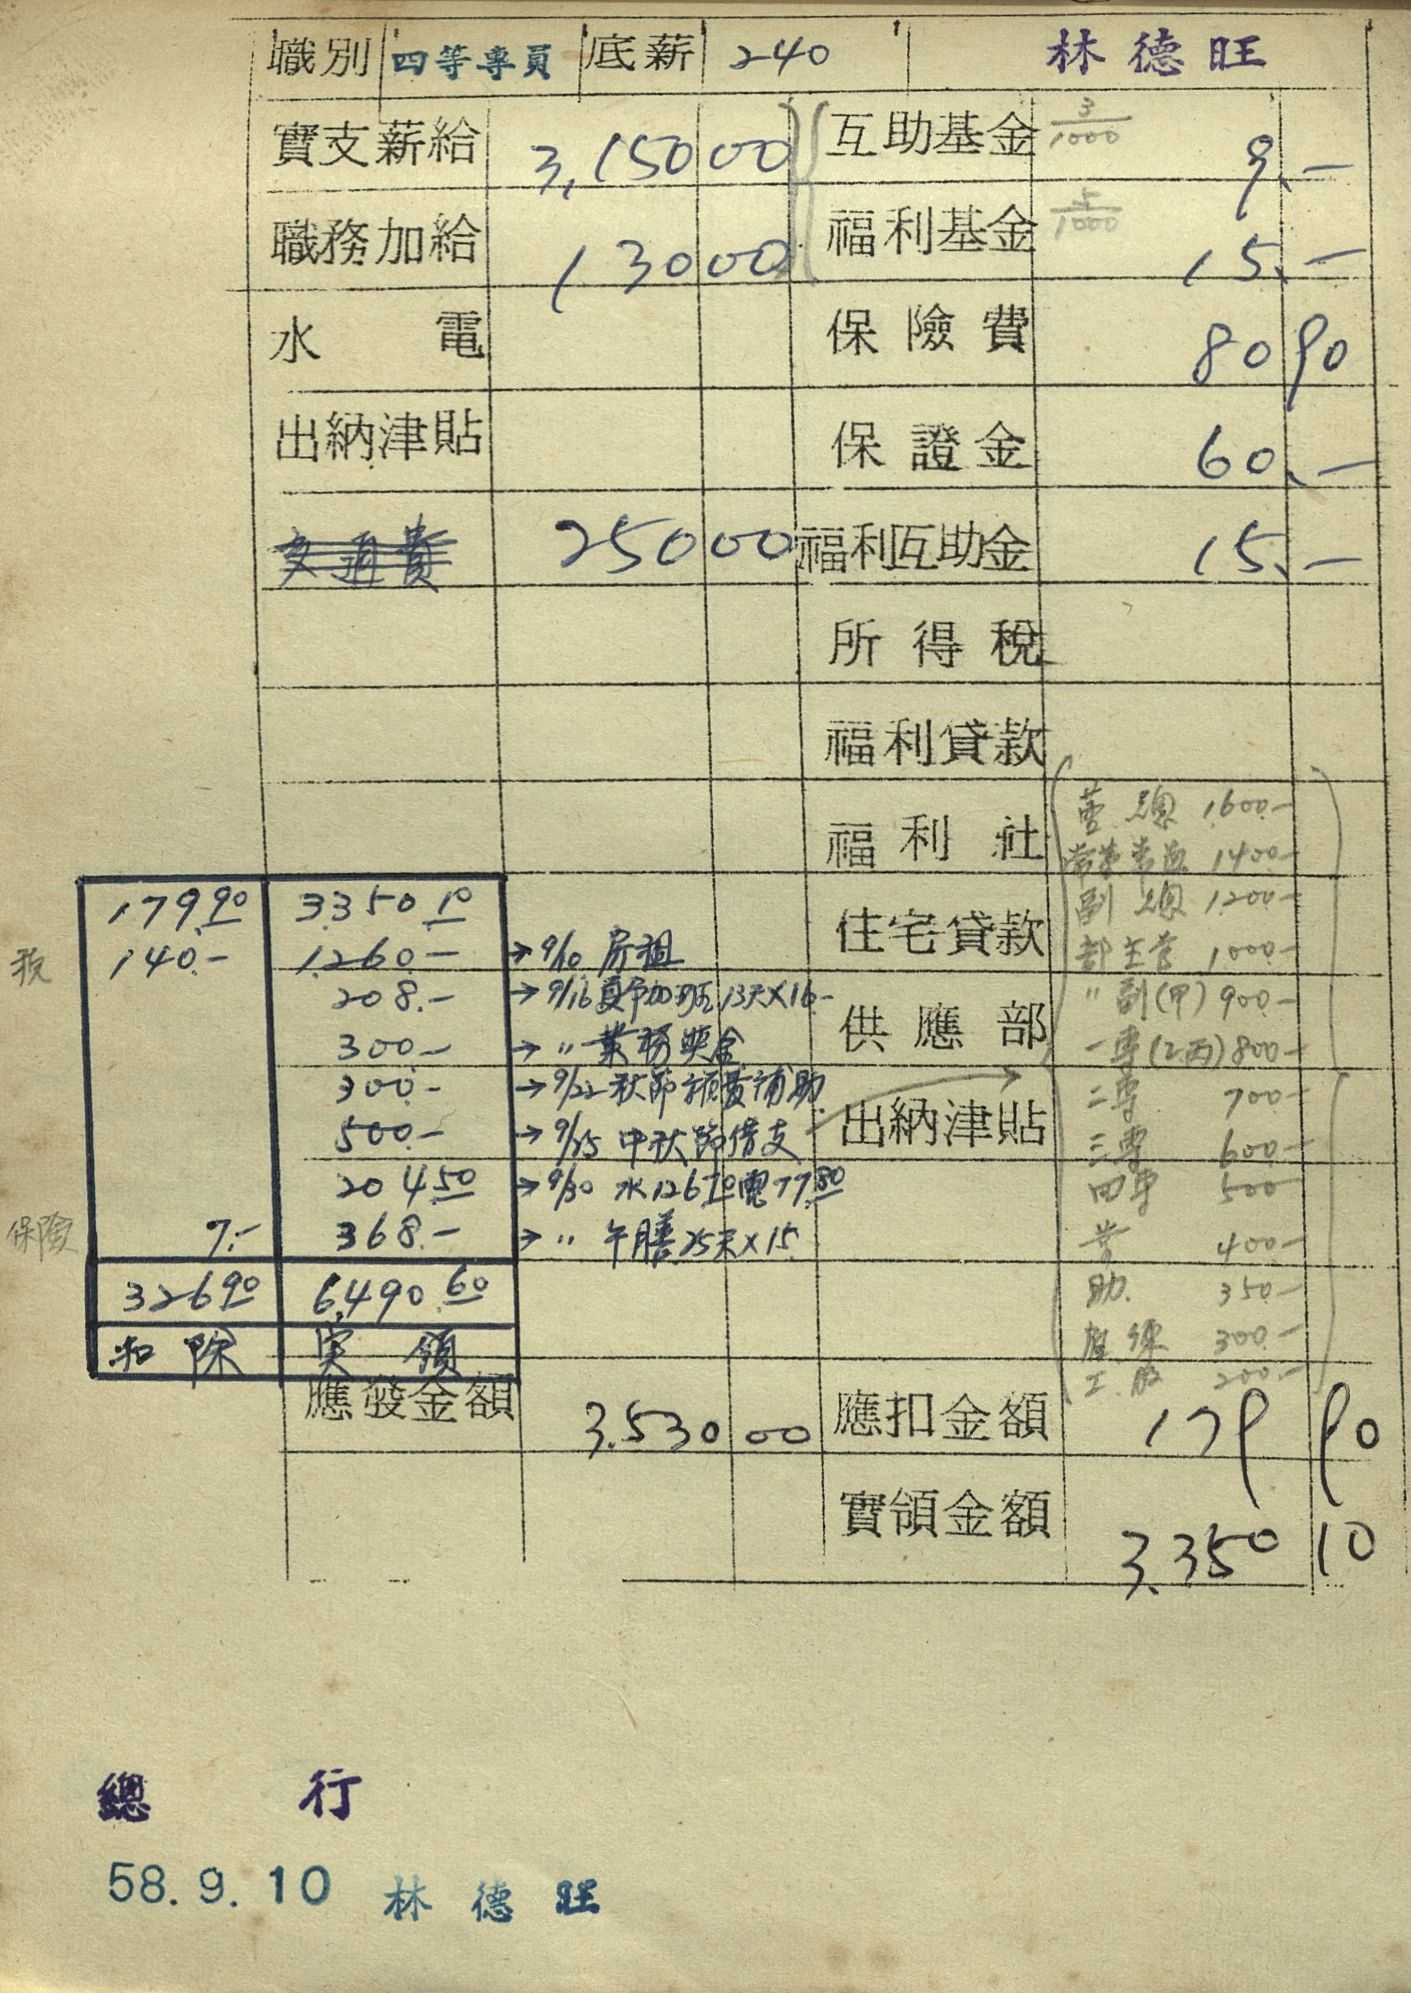 職別 四等專員 底薪 240 林德旺
實支薪給 3,150 00 互助基金 3/1000 9.-
職務加給 130 00 福利基金 5/1000 15.-
水電 保險費 80 90
出納津貼 保證金 60.-
交通費 250 00 福利互助金 15.-
所得稅
福利貸款
福利社
總 1600.-
1400.-
副總 1200.-
住宅貸款
部主管 1000.-
〃副(甲) 900.-
供應部
一專(乙丙) 800.-
二專 700.-
出納津貼
三專 600.-
四專 500.-
400.-
助. 350.-
300.-
工. 200.-
179.90 3350.10
税 140.- 1,260.- →9/10 房租
208.- →9/16 夏令加班 13天×16.-
300.- →〃 業務奖金
300.- →9/22 秋節 補助
500.- →9/25 中秋節借支
204.50 →9/30 水126.70電77.80
保險 7.- 368.- →〃 午膳25天×15
326.90 6,490.60
扣除 実領
應發金額 3.530 00 應扣金額 179 90
實領金額 3.350 10
總行
58.9.10 林德旺